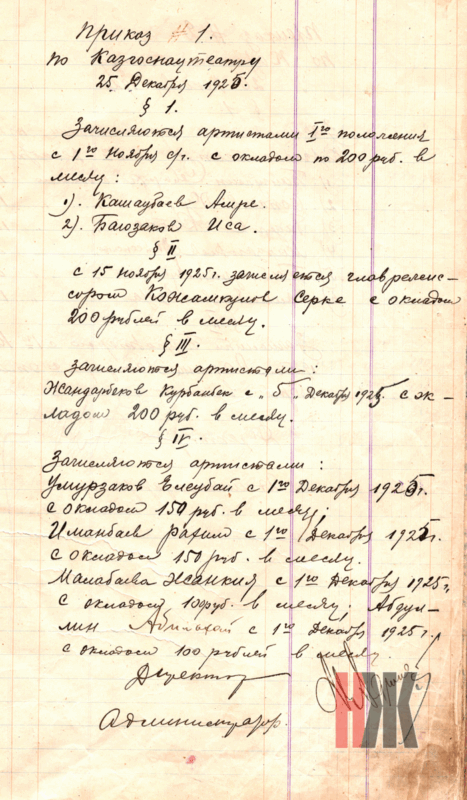 Приказ # 1.
по Казгоснаутеатру
25. Декабря 1925.
§ 1.
Зачисляются артистами I го положения
с 1го Ноября с/г. с окладом по 200 руб. в
месяц:
1). Кашаубаев Амре.
2). Байзаков Иса.
§ II
с 15 Ноября 1925 г. зачисляется главрежис-
сером Кожамкулов Серке с окладом
200 рублей в месяц.
§ III.
Зачисляются артистами:
Жандарбеков Курбанбек с „5" Декабря 1925 с ок-
ладом 200 руб. в месяц.
§ IV.
Зачисляются артистами:
Умурзаков Елеубай с 1го Декабря 1925г.
с окладом 150 руб. в месяц;
Иманбаев Рахим с 1го Декабря 1925г.
с окладом 150 руб. в месяц.
Малабаева Жанкия с 1го Декабря 1925г,
с окладом 100 руб. в месяц; Абдул-
лин с 1го Декабр 1925г.
с окладом 100 рублей в месяц
Директор
Администратор.
НЖ